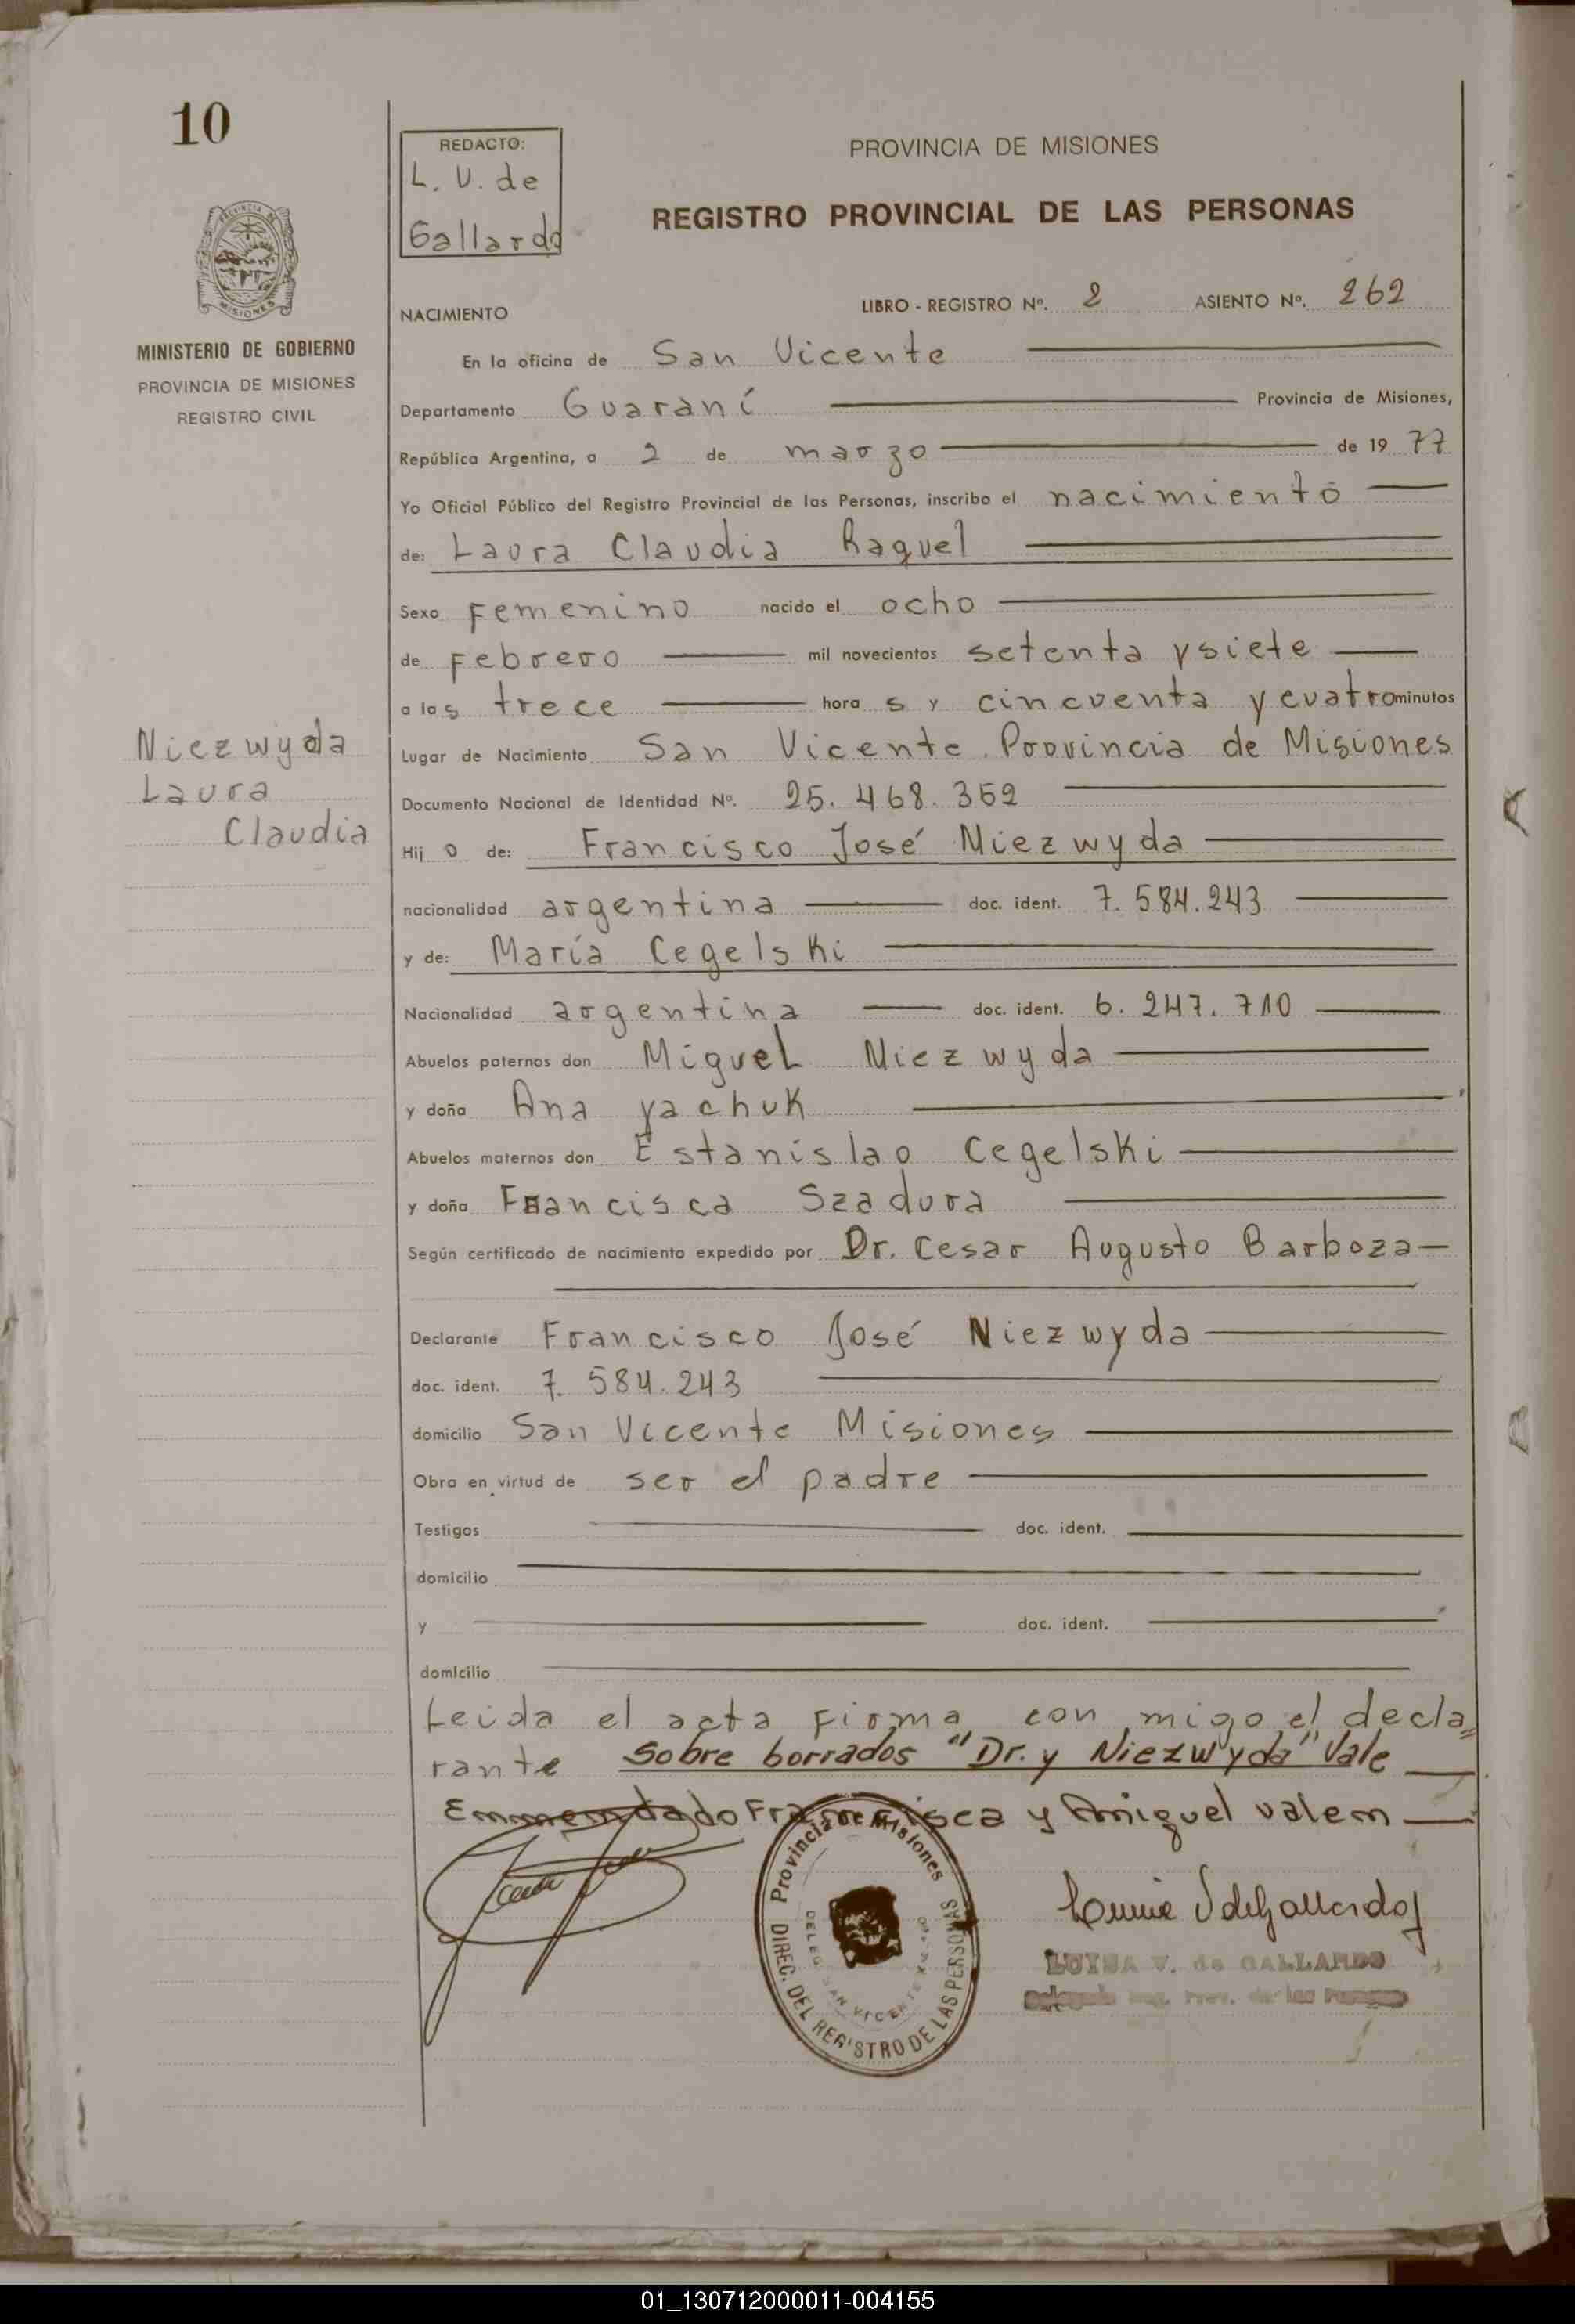 10
REDACTO:
L. V. de
Gallardo
PROVINCIA DE MISIONES
REGISTRO PROVINCIAL DE LAS PERSONAS
MINISTERIO DE GOBIERNO
PROVINCIA DE MISIONES
REGISTRO CIVIL
NACIMIENTO
LIBRO - REGISTRO Nº. 2 ASIENTO Nº. 262
En la oficina de San Vicente
Departamento Guaraní Provincia de Misiones,
República Argentina, a 2 de marzo de 19 77
Yo Oficial Público del Registro Provincial de las Personas, inscribo el nacimiento
de: Laura Claudia Raquel
Sexo Femenino nacido el ocho
de Febrero mil novecientos setenta y siete
a las trece hora s y cincuenta y cuatro minutos
Niezwyda
Laura
Claudia
Lugar de Nacimiento San Vicente Provincia de Misiones
Documento Nacional de Identidad Nº. 25.468.352
Hij o de: Francisco José Niezwyda
nacionalidad argentina doc. ident. 7.584.243
y de: María Cegelski
Nacionalidad argentina doc. ident. 6.247.710
Abuelos paternos don Miguel Niezwyda
y doña Ana yachuk
Abuelos maternos don Estanislao Cegelski
y doña Francisca Szadura
Según certificado de nacimiento expedido por Dr. Cesar Augusto Barboza
Declarante Francisco José Niezwyda
doc. ident. 7.584.243
domicilio San Vicente Misiones
Obra en virtud de ser el padre
Testigos doc. ident.
domicilio
y doc. ident.
domicilio
Leida el acta firma con migo el decla=
rante Sobre borrados "Dr. y Niezwyda" Vale
Emmendado Francisca y Amiguel valem
Provincia de Misiones
DIREC. DEL REGISTRO DE LAS PERSONAS
DELEG. SAN VICENTE
LUISA V. de GALLARDO
Reg. Prov. de las Personas
01_130712000011-004155